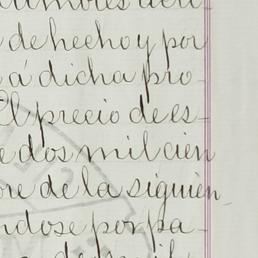 de hecho y por
á dicha pro-
El precio de es-
e dos mil cien
re de la siguien
ndose por pa-